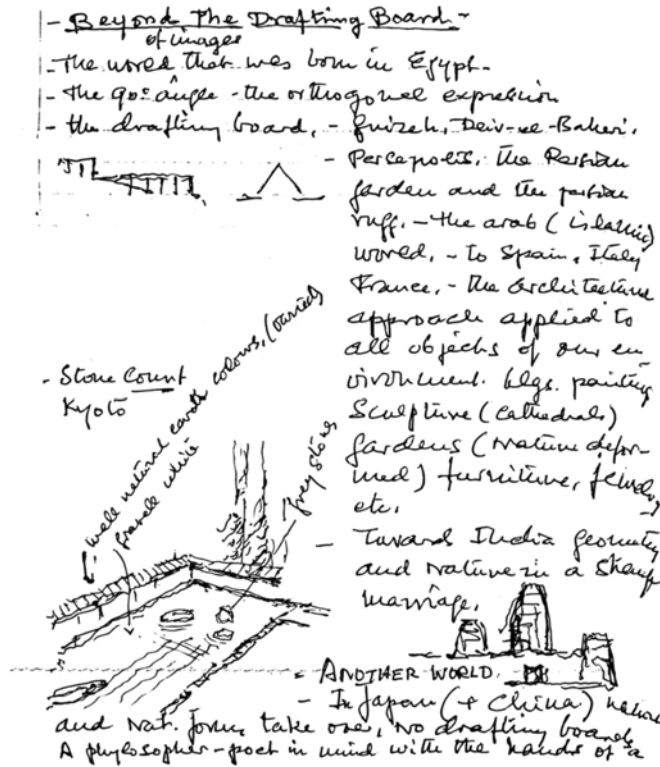 - Beyond The Drafting Board -
of images
- The world that was born in Egypt -
- The 90° angle - the orthogonal expression
- the drafting board, - Guizeh, Deir-el-Baheri.
- Persepolis. the Persian
garden and the persian
rugg. - the arab (islamic)
world, - to Spain, Italy
France, - the architecture
approach applied to
all objects of our en
vironment. blgs. painting
Sculpture (cathedrals)
Gardens (nature defor-
med) furniture,
etc.
- Stone Court
Kyoto
wall natural earth colours, (varied)
gravell white
Grey stones
- Toward India geometry
and nature in a
marriage.
- ANOTHER WORLD.
- In Japan (+ China) nature
and nat. forms take over, no drafting board
A phylosopher-poet in mind with the hands of a